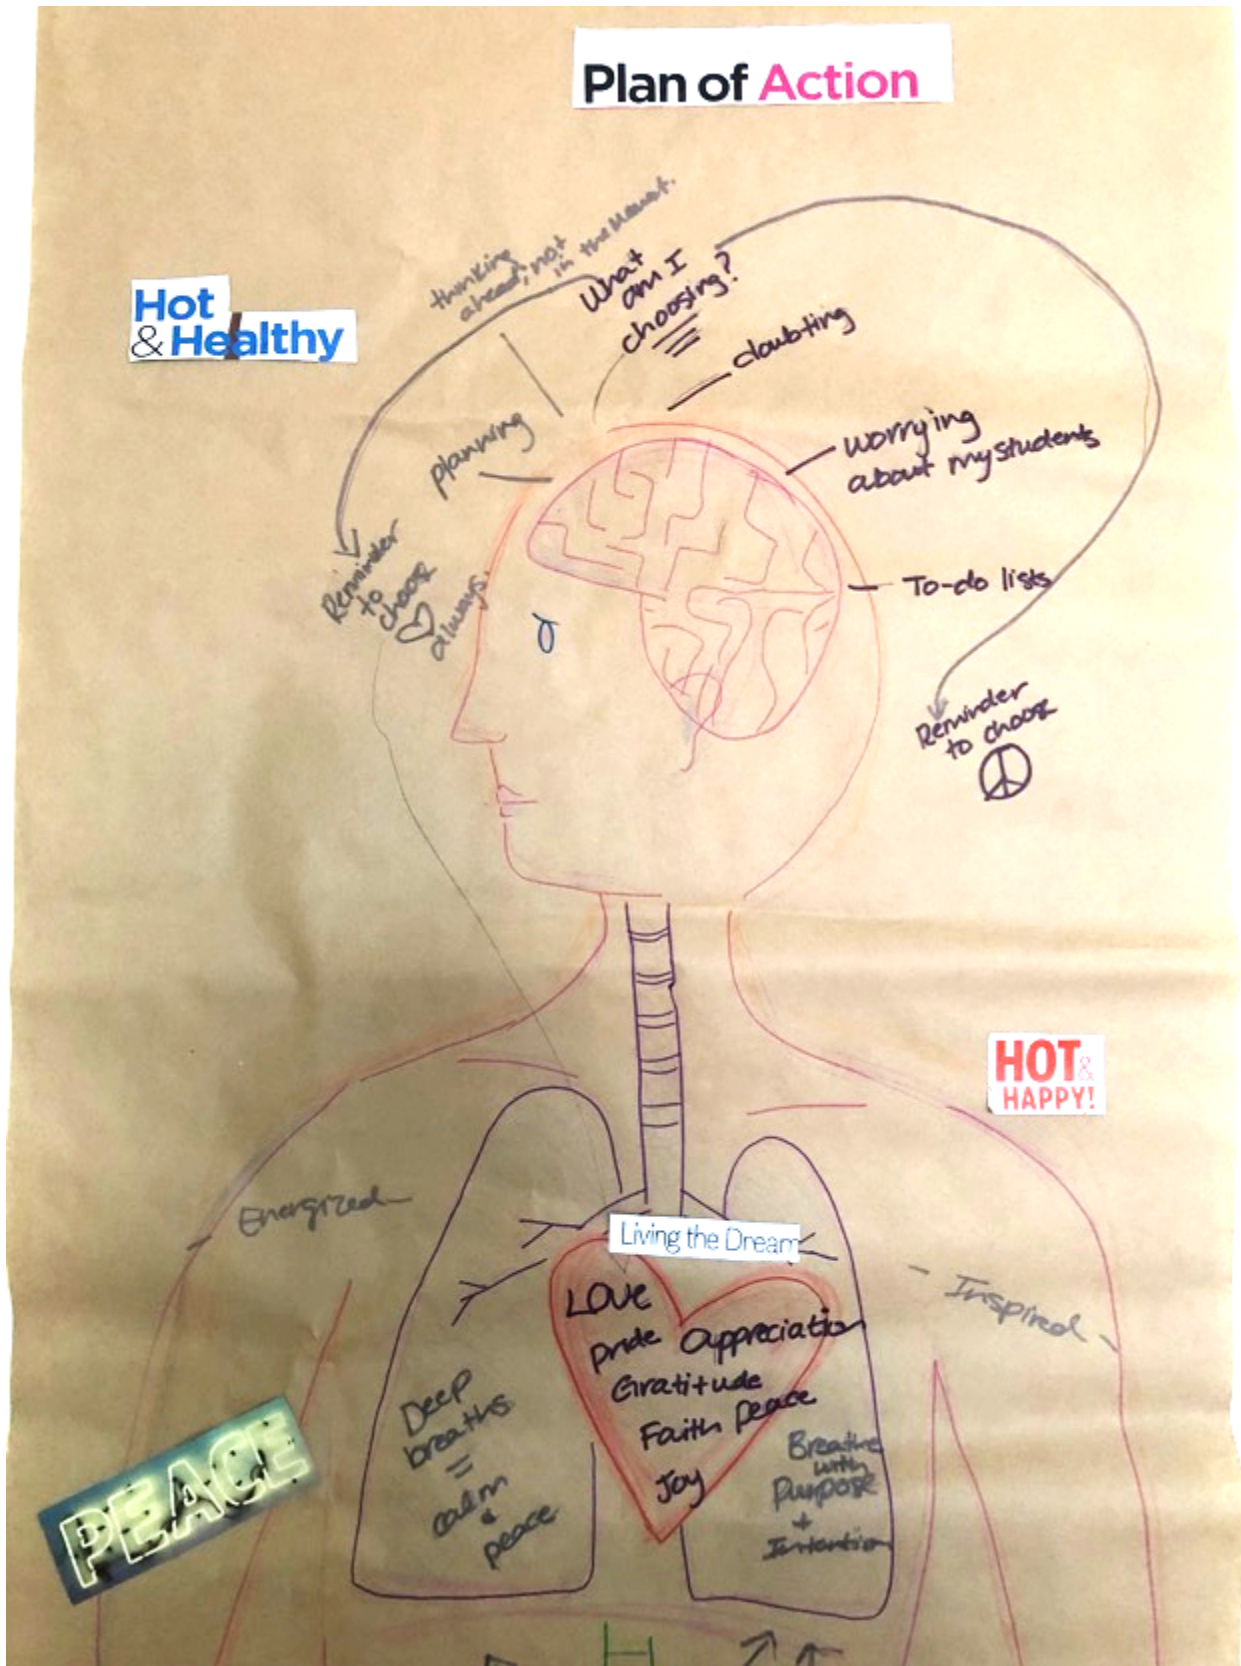 Plan of Action
thinking
ahead, not
in the moment.
What
am I
choosing?
Hot
& Healthy
doubting
planning
worrying
about my students
To-do lists
Reminder
to
choose
always.
Reminder
to choose
HOT &
HAPPY!
Energized
Living the Dream
Inspired
LOVE
pride appreciation
Gratitude
Faith peace
Joy
Deep
breaths
=
calm
&
peace
Breathe
with
Purpose
+
Intention
PEACE
H